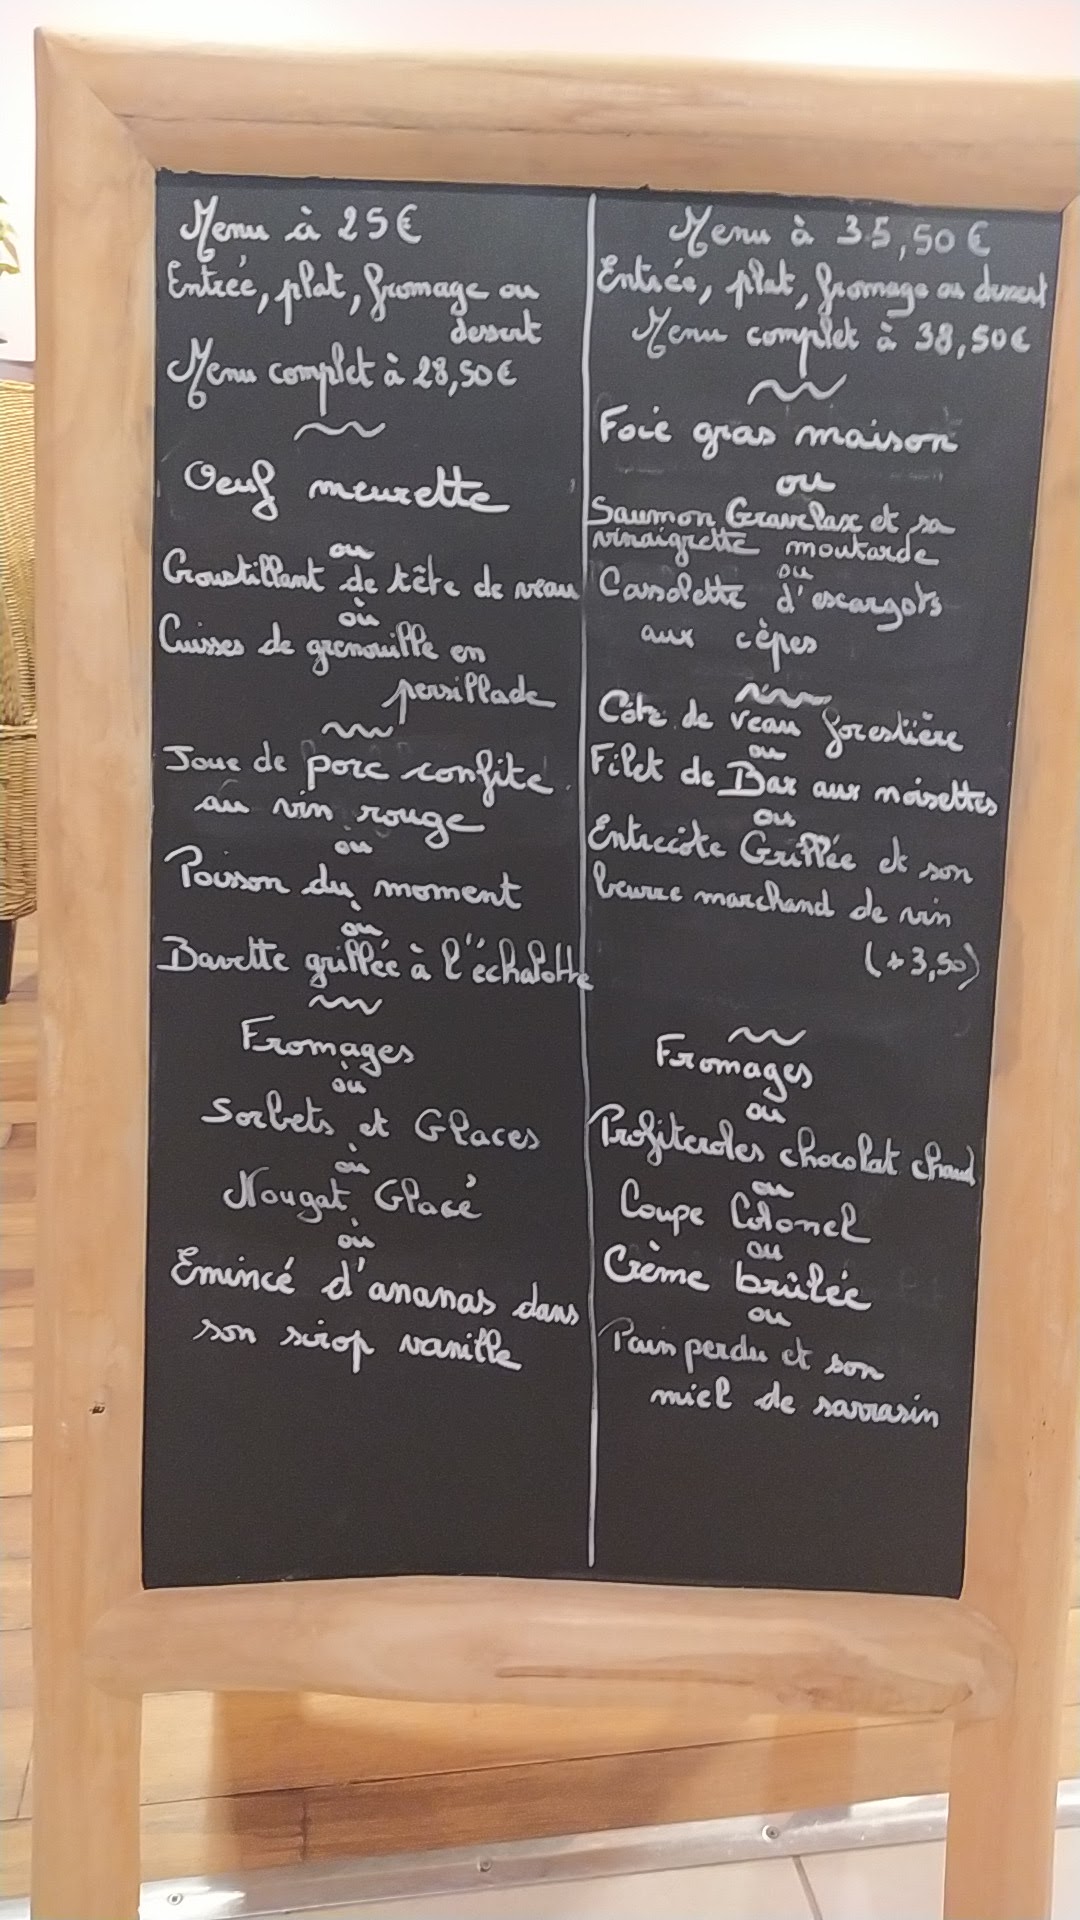 Menu à 25€
Entrée, plat, fromage ou
dessert
Menu complet à 28,50€
Oeuf meurette
ou
Croustillant de tête de veau
où
Cuisses de grenouille en
persillade
Joue de porc confite
au vin rouge
ou
Poisson du moment
ou
Bavette grillée à l'échalotte
Fromages
où
Sorbets et Glaces
où
Nougat Glacé
où
Emincé d'ananas dans
son sirop vanille
Menu à 35,50€
Entrée, plat, fromage ou dessert
Menu complet à 38,50€
Foie gras maison
ou
Saumon Gravelax et sa
vinaigrette moutarde
ou
Cassolette d'escargots
aux cèpes
Côte de veau forestière
ou
Filet de Bar aux noisettes
ou
Entrecôte Grillée et son
beurre marchand de vin
(+3,50)
Fromages
ou
Profiteroles chocolat chaud
ou
Coupe Colonel
ou
Crème brûlée
ou
Pain perdu et son
miel de sarrasin